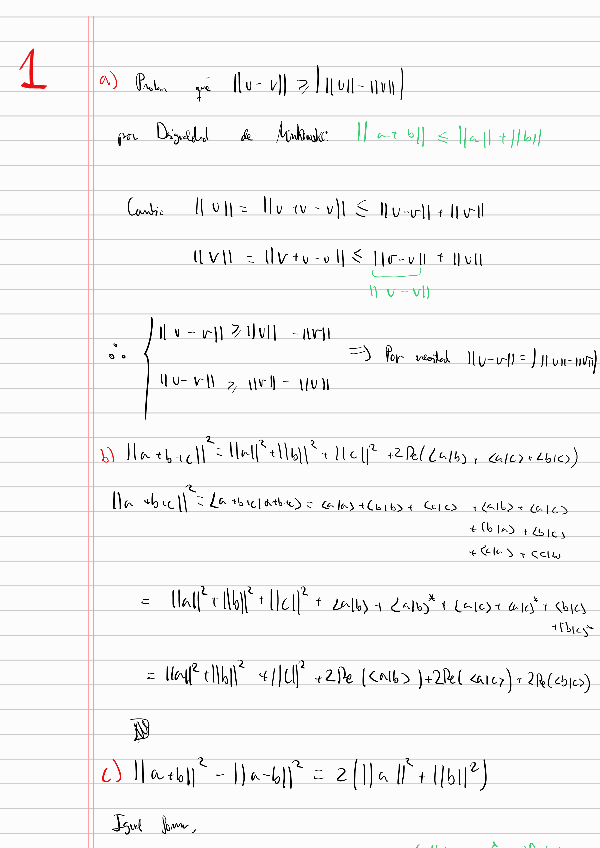 1
a) Probar que ||u - v|| ≥ | ||u|| - ||v|| |
por Desigualdad de Minkowski: ||a + b|| ≤ ||a|| + ||b||
||u|| = ||u + v - v|| ≤ ||u-v|| + ||v||
||v|| = ||v + u - u|| ≤ ||v-u|| + ||u||
||u - v||
∴ { ||u - v|| ≥ ||u|| - ||v||
||u - v|| ≥ ||v|| - ||u||
=> Por ||u-v|| = | ||u|| - ||v|| |
b) ||a+b+c||² = ||a||² + ||b||² + ||c||² + 2Re(<a|b> + <a|c> + <b|c>)
||a+b+c||² = <a+b+c|a+b+c> = <a|a> + <b|b> + <c|c> + <a|b> + <a|c>
+ <b|a> + <b|c>
+ <c|a> + <c|b>
= ||a||² + ||b||² + ||c||² + <a|b> + <a|b>* + <a|c> + <a|c>* + <b|c>
+ <b|c>*
= ||a||² + ||b||² + ||c||² + 2Re(<a|b>) + 2Re(<a|c>) + 2Re(<b|c>)
c) ||a+b||² - ||a-b||² = 2(||a||² + ||b||²)
Igual forma,